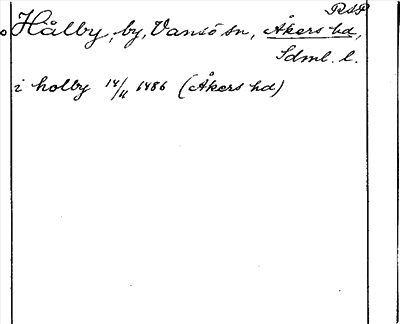 RAP
Hålby, by, Vansö sn, Åkers hd,
Sdml. l.
i holby 14/11 1486 (Åkers hd)